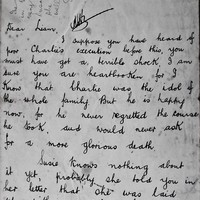 Dear Liam,
I suppose you have heard of
poor Charlie's execution before this, you
must have got a terrible shock. I am
sure you are heartbroken for I
know that Charlie was the idol of
the whole family. But he is happy
now, for he never regretted the course
he took, and would never ask
for a more glorious death.
Susie knows nothing about
it yet, probably she told you in
her letter that she was laid